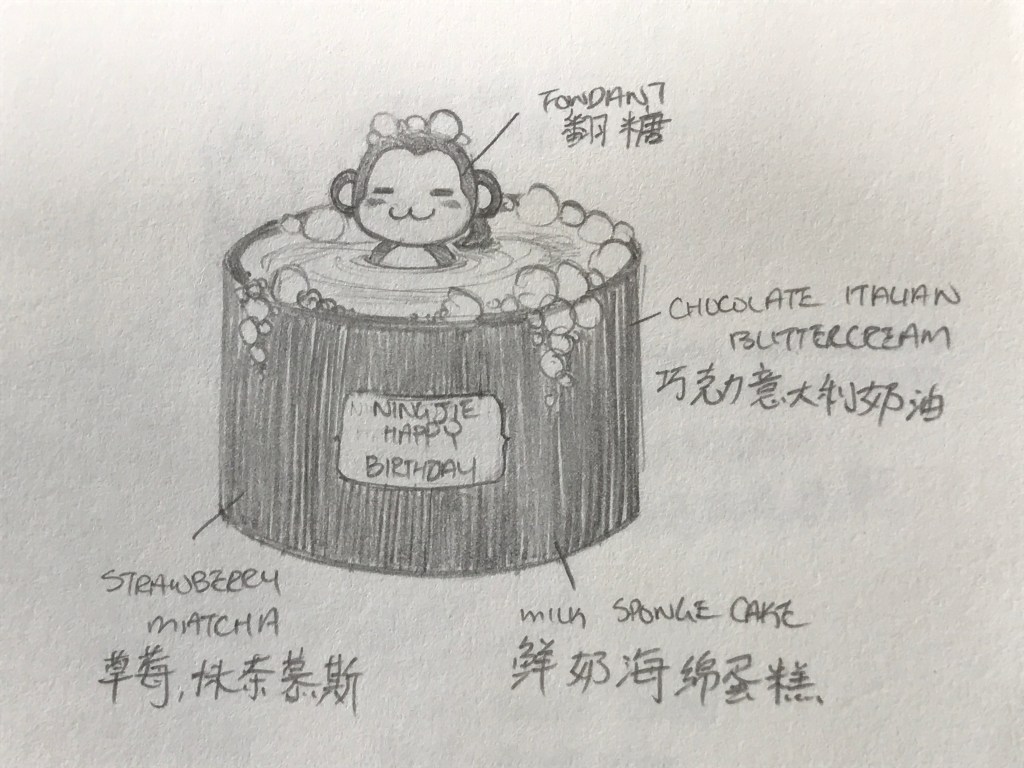 FONDANT
翻糖
CHOCOLATE ITALIAN
BUTTERCREAM
巧克力意大利奶油
NINGJIE
HAPPY
BIRTHDAY
STRAWBERRY
MATCHA
草莓,抹茶慕斯
MILK SPONGE CAKE
鲜奶海绵蛋糕